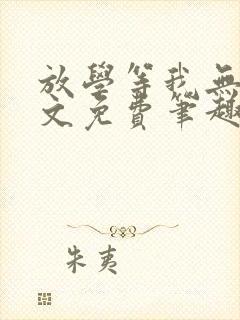 放學等我無
文免費筆趣
朱夷